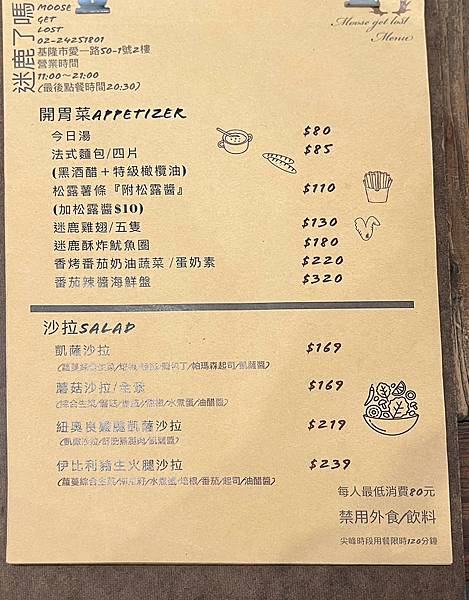 迷鹿了嗎
MOOSE
GET
LOST
02-24251801
基隆市愛一路50-1號2樓
營業時間
11:00~21:00
(最後點餐時間20:30)
Moose get lost
Menu
開胃菜APPETIZER
今日湯 $80
法式麵包/四片 $85
(黑酒醋+特級橄欖油)
松露薯條『附松露醬』 $110
(加松露醬$10)
迷鹿雞翅/五隻 $130
迷鹿酥炸魷魚圈 $180
香烤番茄奶油蔬菜 /蛋奶素 $220
番茄辣醬海鮮盤 $320
沙拉SALAD
凱薩沙拉 $169
(蘿蔓綜合生菜/培根/麵包丁/帕瑪森起司/凱薩醬)
蘑菇沙拉/全素 $169
(綜合生菜/蘑菇/水煮蛋/油醋醬)
紐奧良嫩雞凱薩沙拉 $219
(凱薩沙拉/舒肥雞胸肉/凱薩醬)
伊比利豬生火腿沙拉 $239
(蘿蔓綜合生菜/水煮蛋/培根/番茄/起司/油醋醬)
每人最低消費80元
禁用外食/飲料
尖峰時段用餐限時120分鐘